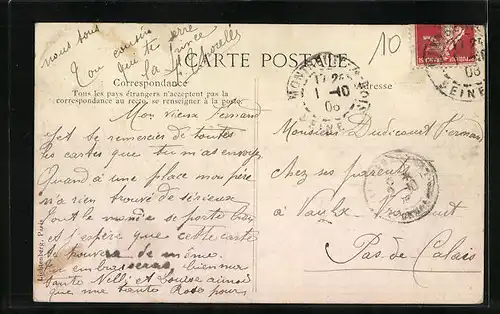 nous tous
Ton cousin
qui te serre
la pince
CARTE POSTALE
10
Correspondance
Adresse
Tous les pays étrangers n'acceptent pas la
correspondance au recto, se renseigner à la poste.
MONTROUGE
1 -10
06
SEINE
Mon vieux Fernand
Monsieur Dudicourt Fernand
Je te remercies de toutes
les cartes que tu m'as envoyé
chez ses parents
Quand à une place mon père
n'a rien trouvé de sérieux
à Vaulx
Tout le monde se porte bien
et j'espère que cette carte
Pas de Calais
te trouvera de même.
Tu embrasseras bien ma
tante Nelli et Louise ainsi
que ma tante Rosa pour
Lichtenberg, Paris